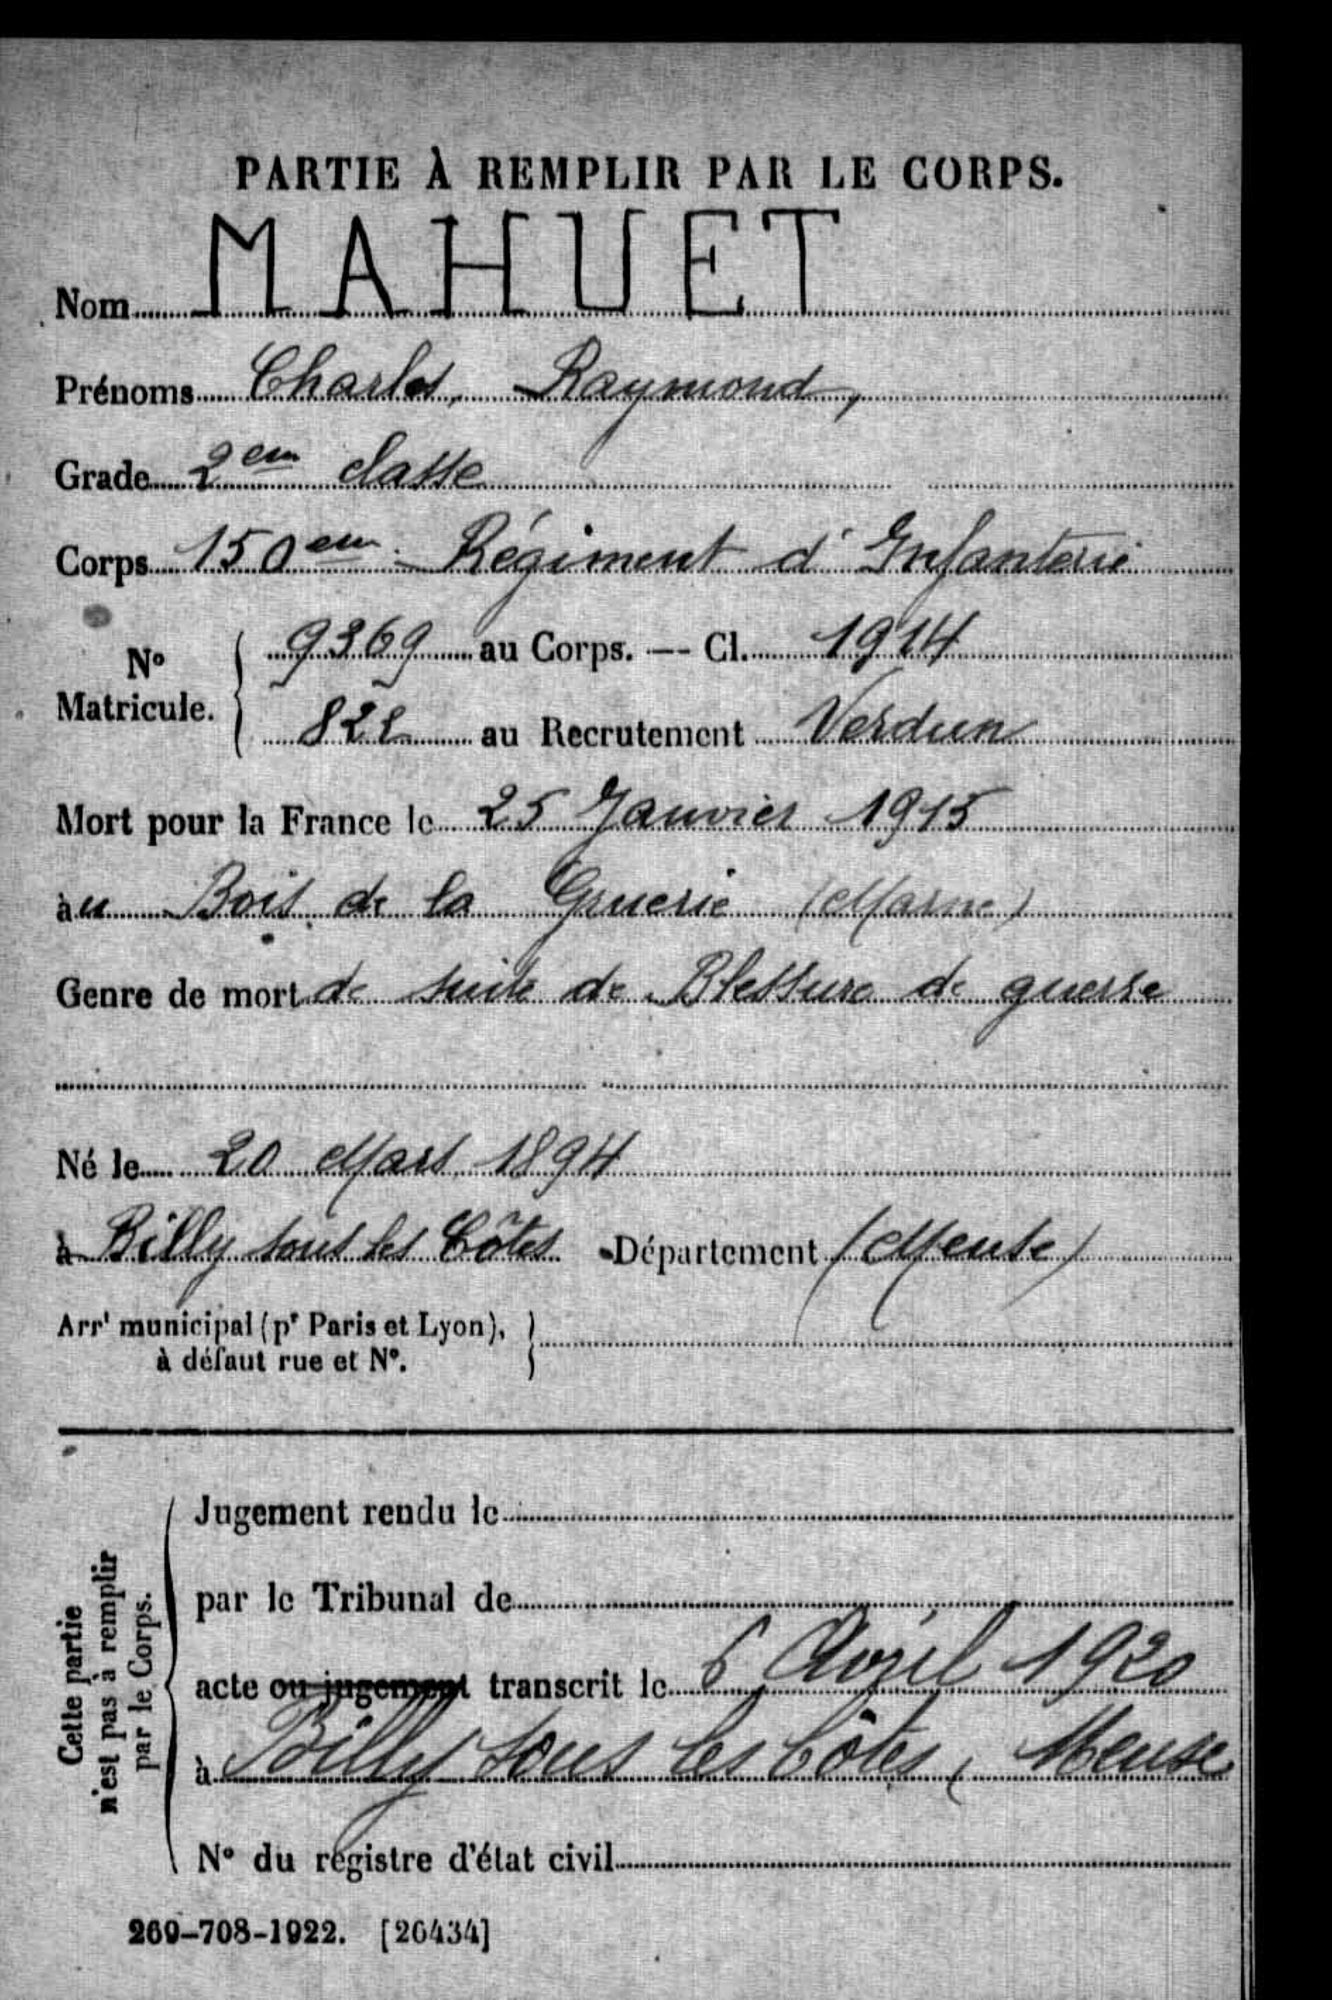 PARTIE À REMPLIR PAR LE CORPS.
Nom MAHUET
Prénoms Charles, Raymond,
Grade 2em classe
Corps 150em Régiment d'Infanterie
N° Matricule. 9369 au Corps. — Cl. 1914
822 au Recrutement Verdun
Mort pour la France le 25 Janvier 1915
àu Bois de la Gruerie (Marne)
Genre de mort de suite de Blessure de guerre
Né le 20 Mars 1894
à Billy sous les Côtes Département (Meuse)
Arrt municipal (pr Paris et Lyon),
à défaut rue et N°.
Cette partie
n'est pas à remplir
par le Corps.
Jugement rendu le
par le Tribunal de
acte ou jugement transcrit le 6 Avril 1920
à Billy sous les Côtes, Meuse
N° du registre d'état civil
269-708-1922. [26434]